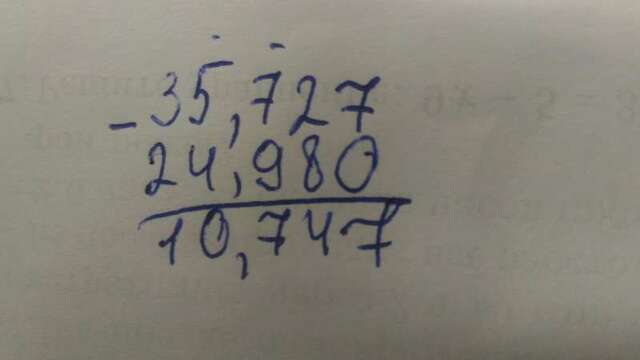 - 35,727
24,980
10,747